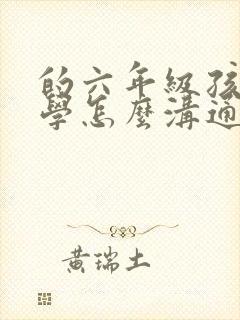 的六年級孩
學怎麼溝通
黃瑞土